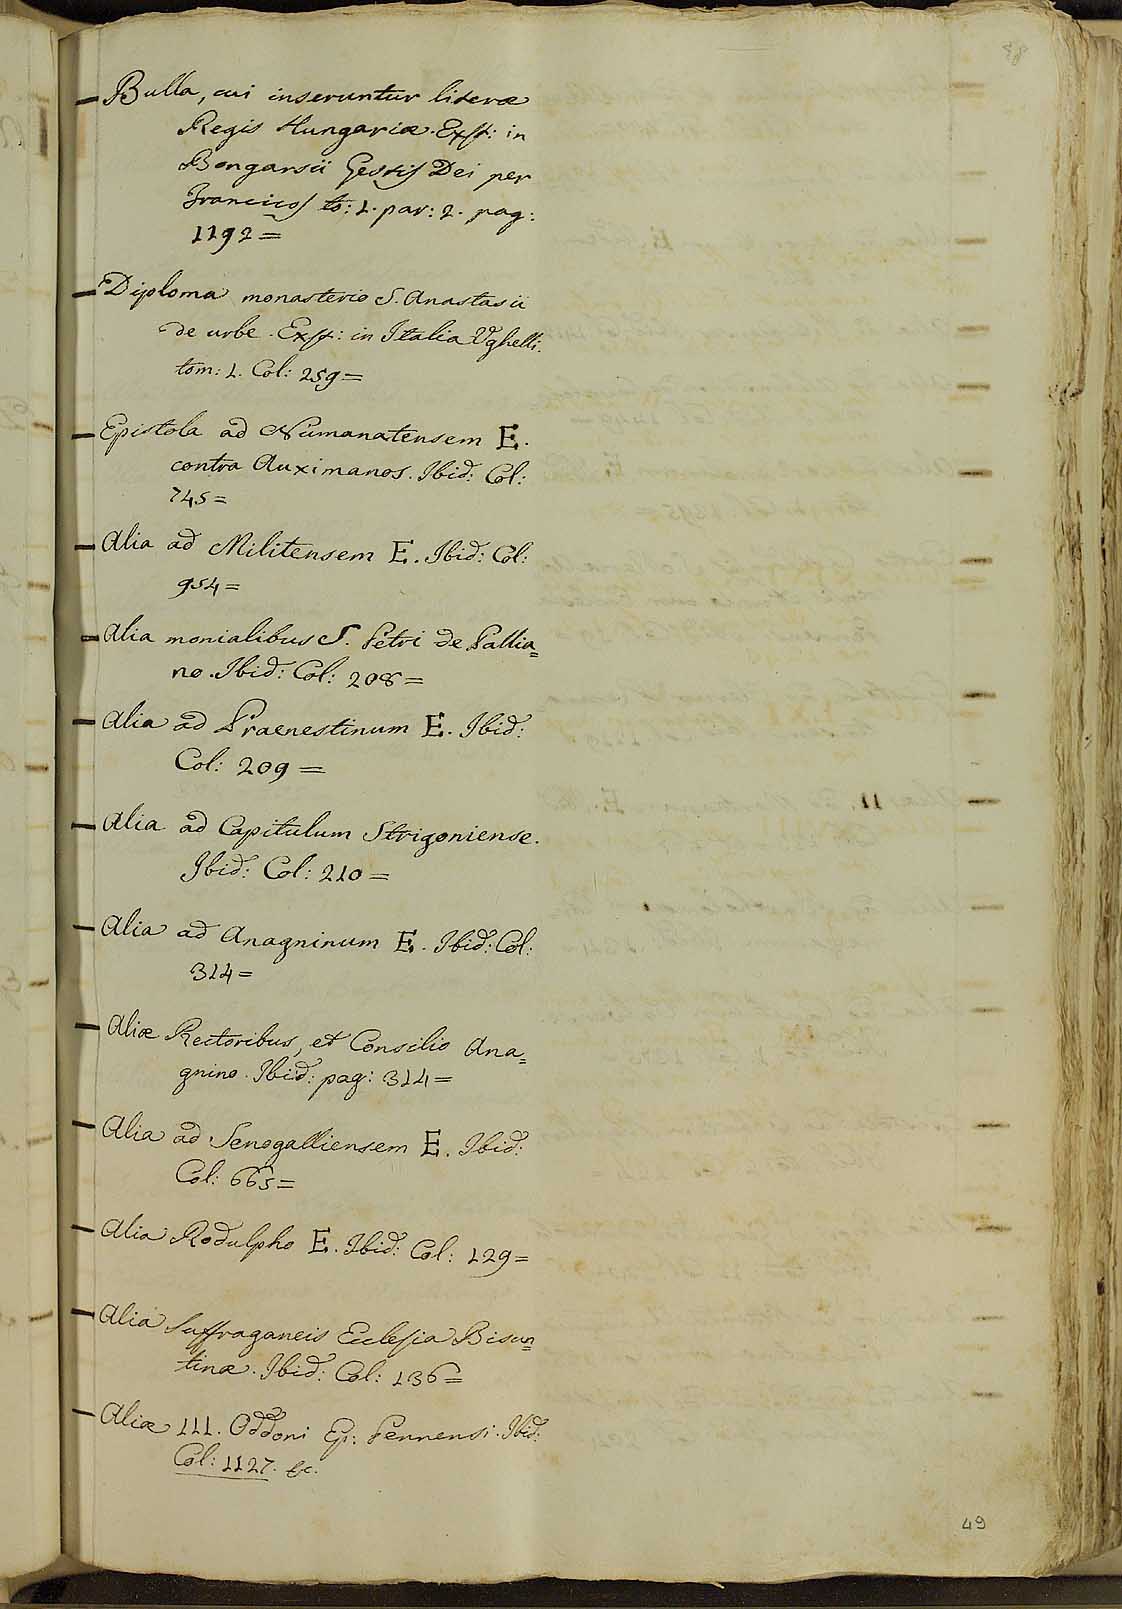 Bulla, cui inseruntur literæ
Regis Hungariæ. Exst: in
Bongarsii Gestis Dei per
Francicos to: 1. par: 2. pag:
1192=
Diploma monasterio S. Anastasii
de urbe. Exst: in Italia Ughelli.
tom: 1. Col: 259=
Epistola ad Numanatensem E.
contra Auximanos. Ibid: Col:
745=
Alia ad Militensem E. Ibid: Col:
954=
Alia monialibus S. Petri de Pallia=
no. Ibid: Col: 208=
Alia ad Praenestinum E. Ibid:
Col: 209=
Alia ad Capitulum Strigoniense.
Ibid: Col: 210=
Alia ad Anagninum E. Ibid: Col:
314=
Aliæ Rectoribus, et Consilio Ana=
gnino. Ibid: pag: 314=
Alia ad Senogalliensem E. Ibid:
Col: 665=
Alia Rodulpho E. Ibid: Col: 129=
Alia Suffraganeis Ecclesia Bisun=
tinæ. Ibid: Col: 136=
Aliæ III. Oddoni Ep: Pennensi. Ibid:
Col: 1127. &c.
49